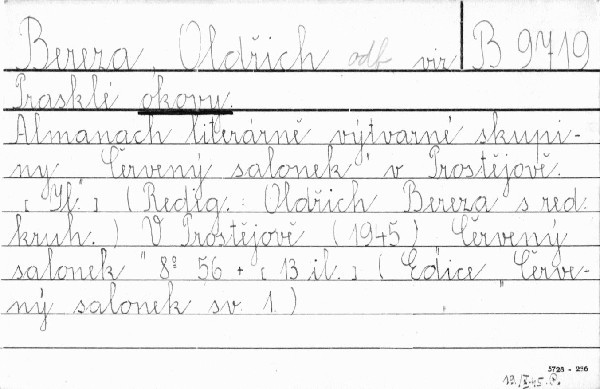 Bereza, Oldřich odb. viz B 9719
Prasklé okovy.
Almanach literárně výtvarné skupi-
ny "Červený salonek" v Prostějově.
[Il.] (Redig.: Oldřich Bereza s red.
kruh.) V Prostějově (1945) "Červený
salonek" 8° 56 + [13 il.] (Edice "Červe-
ný salonek" sv. 1.)
5723 - 236